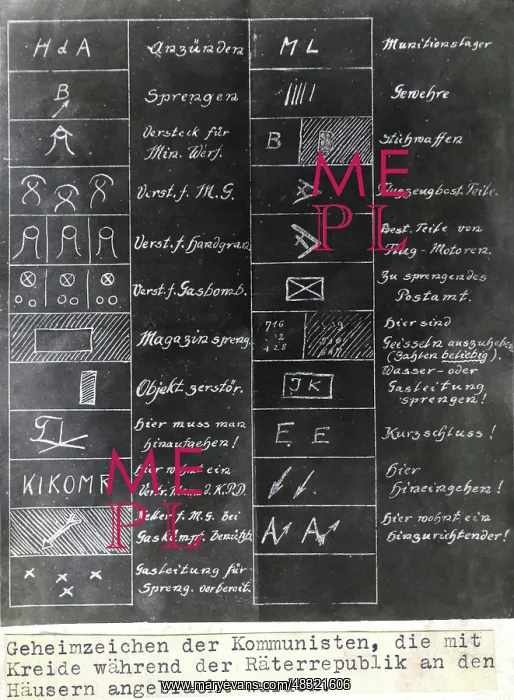 H d A
Anzünden
B
Sprengen
Versteck für
Min. Werf.
Verst. f. M. G.
Verst. f. Handgran.
Verst. f. Gasbomb.
Magazin spreng.
Objekt zerstör.
Hier muss man
hinaufgehen!
KIKOMR
Hier wohnt ein
d. K.P.D.
f. M. G. bei
Gaskampf. benützb.
Gasleitung für
Spreng. vorbereit.
M L
Munitionslager
Gewehre
B B
Stichwaffen
Flugzeugbest. Teile.
Best. Teile von
Flug-Motoren.
Zu sprengendes
Postamt.
716
12
428
Hier sind
Geisseln auszuheben
(Zahlen beliebig).
JK
Wasser- oder
Gasleitung
sprengen!
E E
Kurzschluss!
Hier
hineingehen!
A A
Hier wohnt ein
Hinzurichtender!
ME
PL
ME
PL
Geheimzeichen der Kommunisten, die mit
Kreide während der Räterrepublik an den
Häusern
www.maryevans.com/48321606